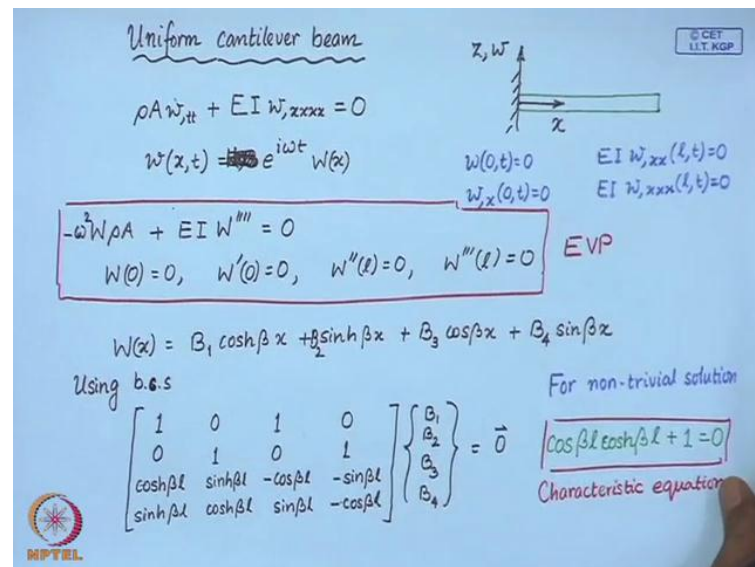 Uniform cantilever beam
© CET
I.I.T. KGP
z, w
x
ρA w,tt + EI w,xxxx = 0
w(x,t) = e^{iωt} W(x)
w(0,t)=0 EI w,xx(l,t)=0
w,x(0,t)=0 EI w,xxx(l,t)=0
-ω²WρA + EI W'''' = 0
W(0)=0, W'(0)=0, W''(l)=0, W'''(l)=0
EVP
W(x) = B₁ coshβx + B₂ sinhβx + B₃ cosβx + B₄ sinβx
Using b.c.s
1 0 1 0 B₁
0 1 0 1 B₂
coshβl sinhβl -cosβl -sinβl B₃
sinhβl coshβl sinβl -cosβl B₄
= 0⃗
For non-trivial solution
cosβl coshβl + 1 = 0
Characteristic equation
NPTEL